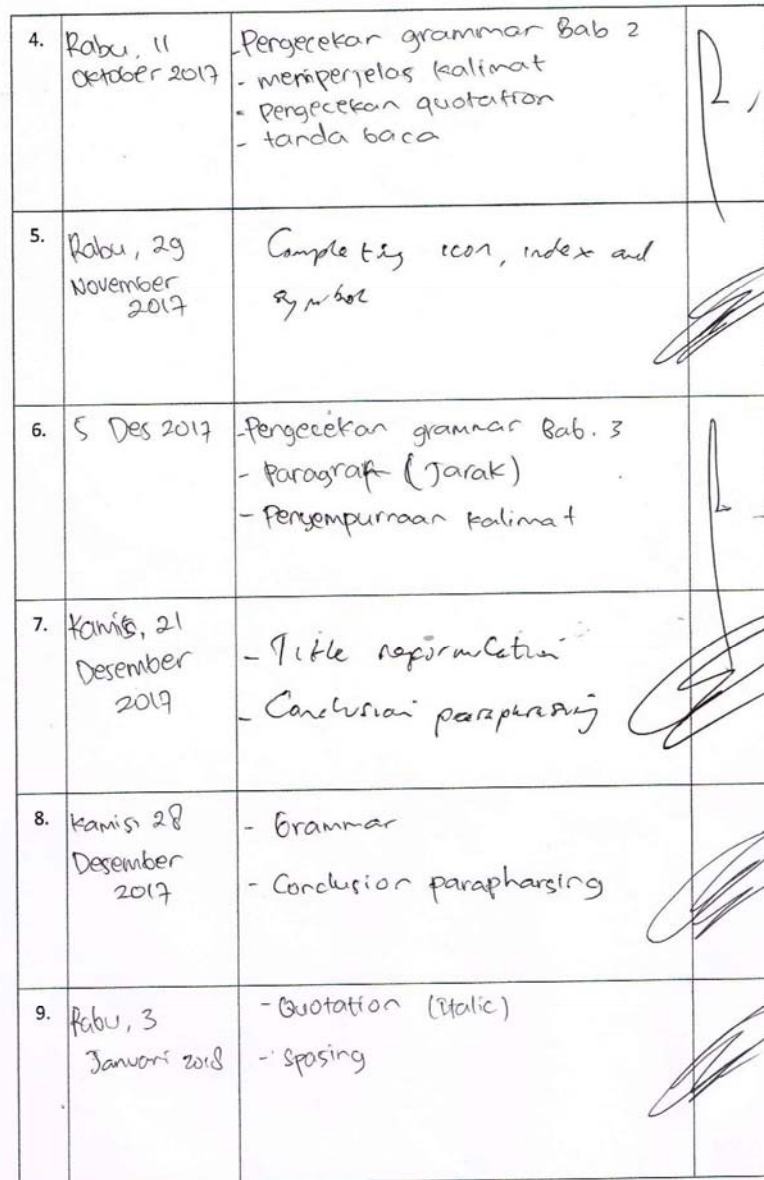 4.
Rabu, 11
Oktober 2017
-Pengecekan grammar Bab 2
- memperjelas kalimat
- Pengecekan quotation
- tanda baca
5.
Rabu, 29
November
2017
Completing icon, index and
symbol
6.
5 Des 2017
-Pengecekan grammar Bab. 3
- Paragraf (Jarak)
- Penyempurnaan kalimat
7.
Kamis, 21
Desember
2017
- Title reformulation
- Conclusion paraphrasing
8.
Kamis, 28
Desember
2017
- Grammar
- Conclusion parapharsing
9.
Rabu, 3
Januari 2018
- Quotation (italic)
- Spasing